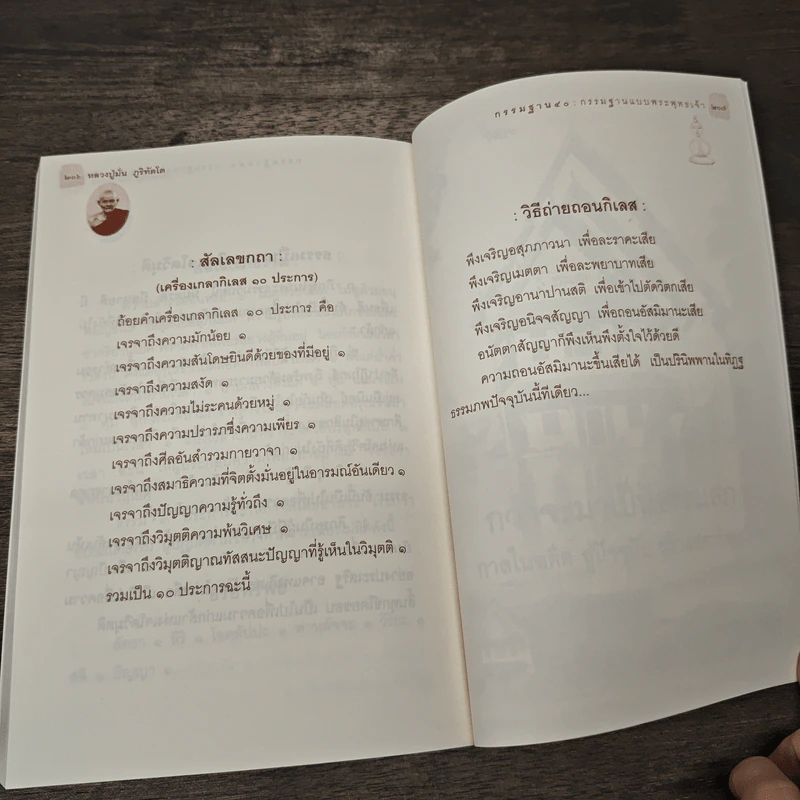 ๒๐๖ หลวงปู่มั่น ภูริทัตโต
: สัลเลขกถา :
(เครื่องเกลากิเลส ๑๐ ประการ)
ถ้อยคำเครื่องเกลากิเลส ๑๐ ประการ คือ
เจรจาถึงความมักน้อย ๑
เจรจาถึงความสันโดษยินดีด้วยของที่มีอยู่ ๑
เจรจาถึงความสงัด ๑
เจรจาถึงความไม่ระคนด้วยหมู่ ๑
เจรจาถึงความปรารภซึ่งความเพียร ๑
เจรจาถึงศีลอันสำรวมกายวาจา ๑
เจรจาถึงสมาธิความที่จิตตั้งมั่นอยู่ในอารมณ์อันเดียว ๑
เจรจาถึงปัญญาความรู้ทั่วถึง ๑
เจรจาถึงวิมุตติความพ้นวิเศษ ๑
เจรจาถึงวิมุตติญาณทัสสนะปัญญาที่รู้เห็นในวิมุตติ ๑
รวมเป็น ๑๐ ประการฉะนี้
กรรมฐาน๔๐ : กรรมฐานแบบพระพุทธเจ้า ๒๐๗
: วิธีถ่ายถอนกิเลส :
พึงเจริญอสุภภาวนา เพื่อละราคะเสีย
พึงเจริญเมตตา เพื่อละพยาบาทเสีย
พึงเจริญอานาปานสติ เพื่อเข้าไปตัดวิตกเสีย
พึงเจริญอนิจจสัญญา เพื่อถอนอัสมิมานะเสีย
อนัตตาสัญญาก็พึงเห็นพึงตั้งใจไว้ด้วยดี
ความถอนอัสมิมานะขึ้นเสียได้ เป็นปรินิพพานในทิฏฐ
ธรรมภพปัจจุบันนี้ทีเดียว...